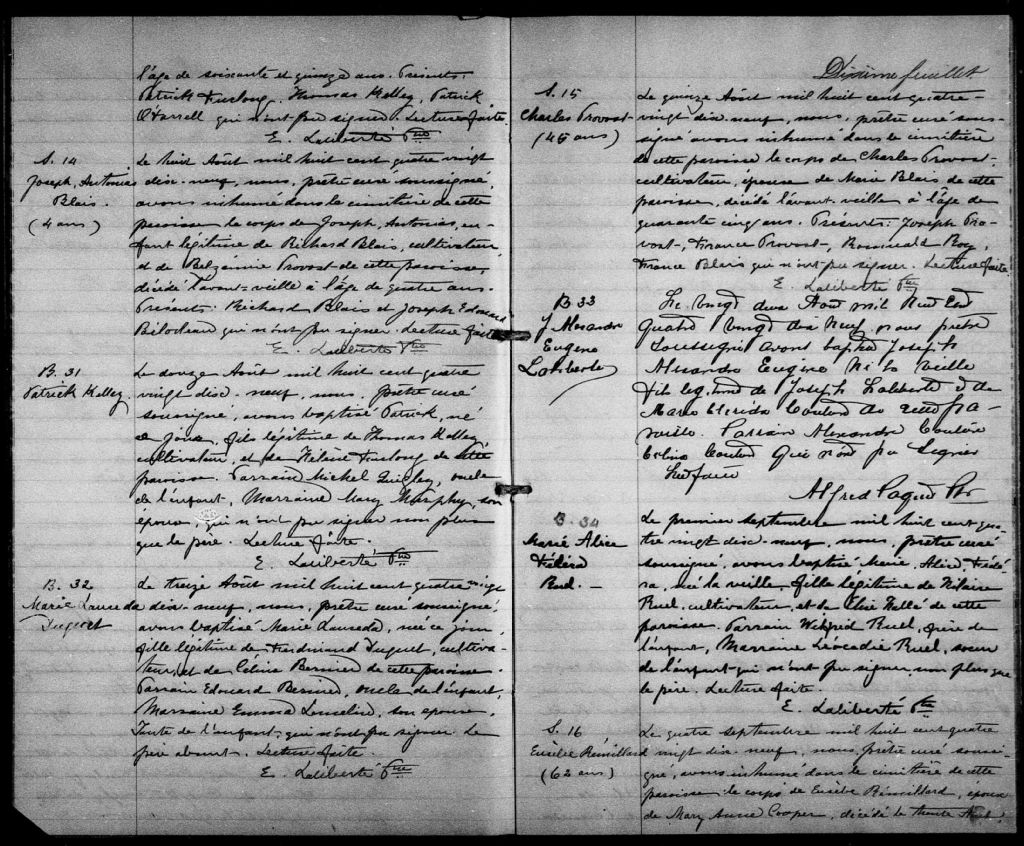 l'âge de soixante et quinze ans. Présents:
Patrick Furlong, Thomas Kelley, Patrick
O'Farrell qui n'ont pu signer. Lecture faite.
E. Laliberté Ptre
S. 14
Joseph, Antonias
Blais.
(4 ans)
Le huit Août mil huit cent quatre vingt
dix-neuf, nous, prêtre curé soussigné,
avons inhumé dans le cimetière de cette
paroisse le corps de Joseph, Antonias, en-
fant légitime de Richard Blais, cultivateur
et de Belzémire Provost de cette paroisse,
décédé l'avant-veille à l'âge de quatre ans.
Présents: Richard Blais et Joseph Edouard
Bilodeau qui n'ont pu signer. Lecture faite.
E. Laliberté Ptre
B. 31
Patrick Kelley
Le douze Août mil huit cent quatre
vingt dix-neuf, nous, prêtre curé
soussigné, avons baptisé Patrick, né
ce jour, fils légitime de Thomas Kelley,
cultivateur, et de Hélène Furlong de cette
paroisse. Parrain Michel Quigley, oncle
de l'enfant, Marraine Mary Murphy, son
épouse, qui n'ont pu signer non plus
que le père. Lecture faite.
E. Laliberté Ptre
B. 32
Marie Laureda
Duquet
Le treize Août mil huit cent quatre vingt
dix-neuf, nous, prêtre curé soussigné,
avons baptisé Marie Laureda, née ce jour,
fille légitime de Ferdinand Duquet, cultiva-
teur, et de Célina Bernier de cette paroisse.
Parrain Edouard Bernier, oncle de l'enfant,
Marraine Emma Lemelin, son épouse,
Tante de l'enfant qui n'ont pu signer. Le
père absent. Lecture faite.
E. Laliberté Ptre
Dixième feuillet
S. 15
Charles Provost
(45 ans)
Le quinze Août mil huit cent quatre-
vingt dix-neuf, nous, prêtre curé sous-
signé avons inhumé dans le cimetière
de cette paroisse le corps de Charles Provost
cultivateur, époux de Marie Blais de cette
paroisse, décédé l'avant-veille à l'âge de
quarante cinq ans. Présents: Joseph Pro-
vost, France Provost, Romuald Roy,
France Blais qui n'ont pu signer. Lecture faite.
E. Laliberté Ptre
B 33
J Alexandre
Eugène
Laliberté
Le vingt deux Août mil huit cent
quatre vingt dix neuf nous prêtre
soussigné avons baptisé Joseph
Alexandre Eugène né la veille
fils légitime de Joseph Laliberté et de
Marie Couture de cette pa-
roisse. Parrain Alexandre Couture
Couture qui n'ont pu signer
Lect faite
Alfred Paquet Ptr
B. 34
Marie Alice
Fédéra
Ruel. -
Le premier septembre mil huit cent qua-
tre vingt dix-neuf, nous, prêtre curé
soussigné, avons baptisé Marie, Alice, Fédé-
ra, née la veille, fille légitime de Hilaire
Ruel, cultivateur, et de Elise Hallé de cette
paroisse. Parrain Wilfrid Ruel, frère de
l'enfant, Marraine Léocadie Ruel, soeur
de l'enfant qui n'ont pu signer non plus que
le père. Lecture faite.
E. Laliberté Ptre
S. 16
Eusèbe Rémillard
(62 ans)
Le quatre septembre mil huit cent quatre
vingt dix-neuf, nous, prêtre curé soussi-
gné, avons inhumé dans le cimetière de cette
paroisse le corps de Eusèbe Rémillard, époux
de Mary Anne Cooper, décédé le trente Août